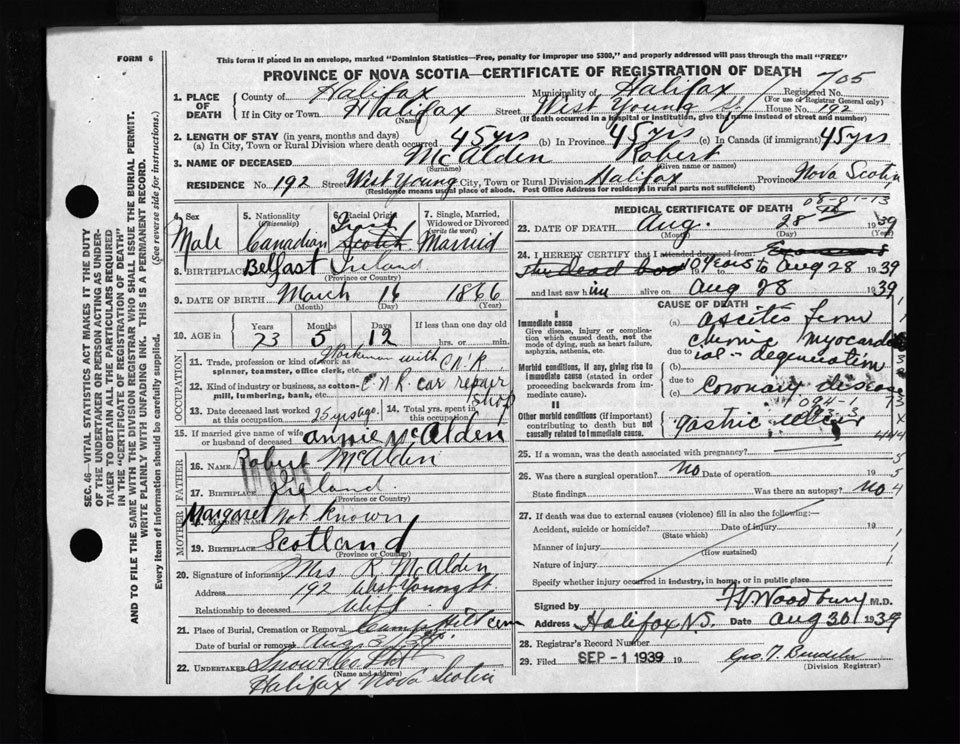 FORM 6
This form if placed in an envelope, marked "Dominion Statistics—Free, penalty for improper use $300," and properly addressed will pass through the mail "FREE"
PROVINCE OF NOVA SCOTIA—CERTIFICATE OF REGISTRATION OF DEATH
705
1. PLACE OF DEATH
County of Halifax Municipality of Halifax Registered No.
(For use of Registrar General only)
If in City or Town Halifax Street West Young St House No. 192
(Name) (If death occurred in a hospital or institution, give the name instead of street and number)
2. LENGTH OF STAY (in years, months and days)
(a) In City, Town or Rural Division where death occurred 45 yrs (b) In Province 45 yrs (c) In Canada (if immigrant) 45 yrs
3. NAME OF DECEASED McAlden Robert
(Surname) (Given name or names)
RESIDENCE No. 192 Street West Young City, Town or Rural Division Halifax Province Nova Scotia
(Residence means usual place of abode. Post Office Address for residents in rural parts not sufficient)
4. Sex
Male
5. Nationality (Citizenship)
Canadian
6. Racial Origin
Irish
Scotch
7. Single, Married, Widowed or Divorced (write the word)
Married
8. BIRTHPLACE Belfast Ireland
(Province or Country)
9. DATE OF BIRTH March 16 1866
(Month) (Day) (Year)
10. AGE in Years Months Days If less than one day
73 5 12 hrs. or min.
OCCUPATION
11. Trade, profession or kind of work as spinner, teamster, office clerk, etc. Workman with C.N.R
12. Kind of industry or business, as cotton-mill, lumbering, bank, etc. C.N.R. car repair shop
13. Date deceased last worked at this occupation 25 yrs ago
14. Total yrs. spent in this occupation
15. If married give name of wife or husband of deceased Annie McAlden
FATHER
16. NAME Robert McAlden
17. BIRTHPLACE Ireland
(Province or Country)
MOTHER
18. MAIDEN NAME Margaret Not Known
19. BIRTHPLACE Scotland
(Province or Country)
20. Signature of informant Mrs R McAlden
Address 192 West Young St
Relationship to deceased Wife
21. Place of Burial, Cremation or Removal Camp Hill Cem
Date of burial or removal Aug 31/39
22. UNDERTAKER Snow &
(Name and address)
Halifax Nova Scotia
MEDICAL CERTIFICATE OF DEATH
23. DATE OF DEATH Aug. 28 1939
(Month) (Day) (Year)
24. I HEREBY CERTIFY that I attended deceased from:
10 years to Aug 28 1939
and last saw him alive on Aug 28 1939
CAUSE OF DEATH
I
Immediate cause
Give disease, injury or complication which caused death, not the mode of dying, such as heart failure, asphyxia, asthenia, etc.
(a) Ascites from chronic myocardial degeneration
due to
Morbid conditions, if any, giving rise to immediate cause (stated in order proceeding backwards from immediate cause).
(b)
due to
(c) Coronary disease
094-1
II
Other morbid conditions (if important) contributing to death but not causally related to immediate cause.
gastric ulcer
25. If a woman, was the death associated with pregnancy?
26. Was there a surgical operation? no Date of operation 19
State findings Was there an autopsy? no
27. If death was due to external causes (violence) fill in also the following:—
Accident, suicide or homicide? Date of injury 19
(State which)
Manner of injury
(How sustained)
Nature of injury
Specify whether injury occurred in industry, in home, or in public place
Signed by H Woodbury M.D.
Address Halifax N.S. Date Aug 30 1939
28. Registrar's Record Number
29. Filed SEP -1 1939 19
(Division Registrar)
SEC. 46—VITAL STATISTICS ACT MAKES IT THE DUTY
OF THE UNDERTAKER OR PERSON ACTING AS UNDER-
TAKER TO OBTAIN ALL THE PARTICULARS REQUIRED
IN THE "CERTIFICATE OF REGISTRATION OF DEATH"
AND TO FILE THE SAME WITH THE DIVISION REGISTRAR WHO SHALL ISSUE THE BURIAL PERMIT.
WRITE PLAINLY WITH UNFADING INK. THIS IS A PERMANENT RECORD.
Every item of information should be carefully supplied. (See reverse side for instructions.)